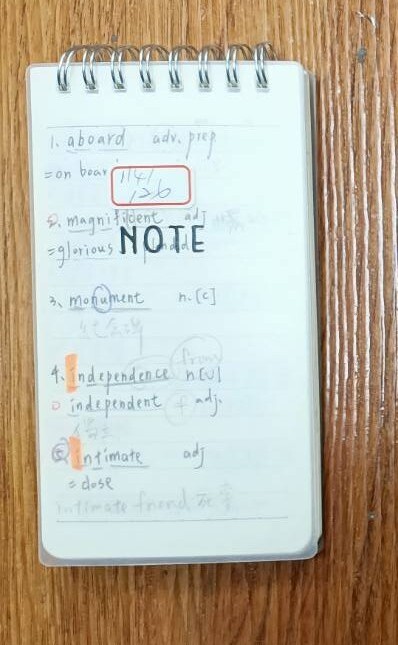 1. aboard adv. prep
= on boar
114/
126
2. magnifident adj
NOTE
= glorious
3. monument n. [c]
from
4. independence n. [u]
independent f adj.
5. intimate adj
= close
intimate friend 死党